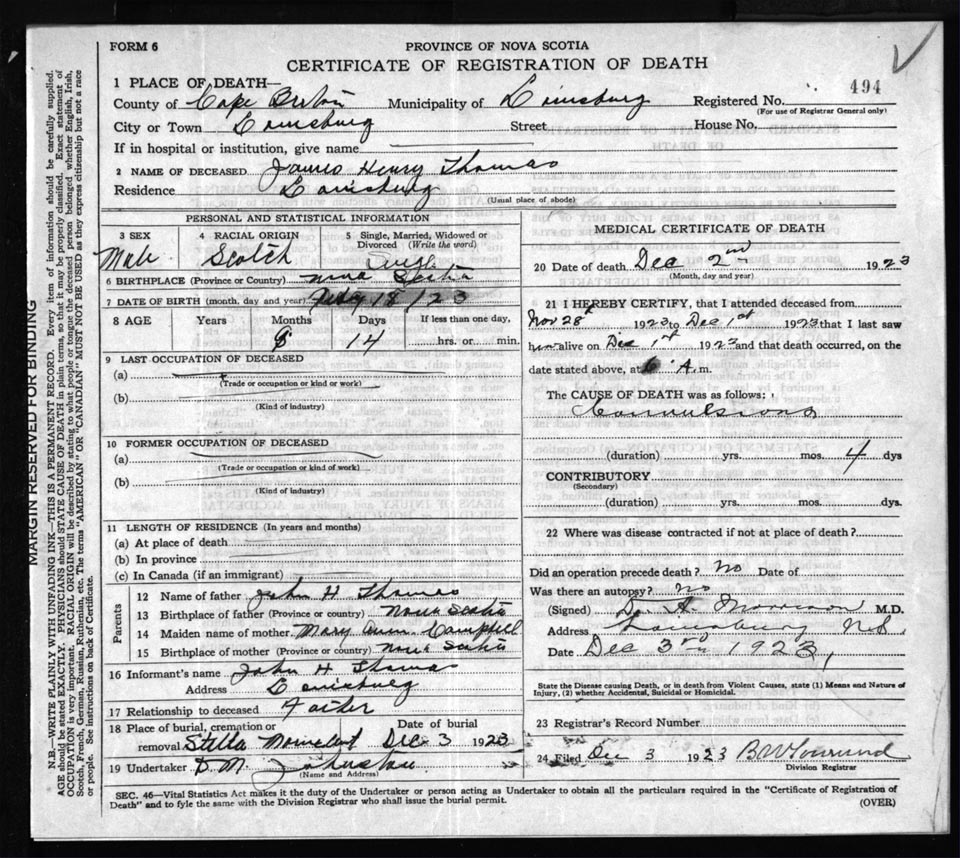 FORM 6
PROVINCE OF NOVA SCOTIA
CERTIFICATE OF REGISTRATION OF DEATH
494
1 PLACE OF DEATH—
County of Cape Breton Municipality of Louisburg Registered No.
(For use of Registrar General only)
City or Town Louisburg Street House No.
If in hospital or institution, give name
2 NAME OF DECEASED James Henry Thomas
Residence Louisburg
(Usual place of abode)
PERSONAL AND STATISTICAL INFORMATION
3 SEX
Male
4 RACIAL ORIGIN
Scotch
5 Single, Married, Widowed or Divorced (Write the word)
Single
6 BIRTHPLACE (Province or Country) Nova Scotia
7 DATE OF BIRTH (month, day and year) 18/23
8 AGE Years Months Days If less than one day,
14 hrs. or min.
9 LAST OCCUPATION OF DECEASED
(a)
(Trade or occupation or kind or work)
(b)
(Kind of industry)
10 FORMER OCCUPATION OF DECEASED
(a)
(Trade or occupation or kind of work)
(b)
(Kind of industry)
11 LENGTH OF RESIDENCE (In years and months)
(a) At place of death
(b) In province
(c) In Canada (if an immigrant)
Parents
12 Name of father John H Thomas
13 Birthplace of father (Province or country) Nova Scotia
14 Maiden name of mother Mary Ann Campbell
15 Birthplace of mother (Province or country) Nova Scotia
16 Informant's name John H Thomas
Address Louisburg
17 Relationship to deceased Father
18 Place of burial, cremation or removal Stella Date of burial Dec 3 1923
19 Undertaker D. M. Johnston
(Name and Address)
MEDICAL CERTIFICATE OF DEATH
20 Date of death Dec 2nd 1923
(Month, day and year)
21 I HEREBY CERTIFY, that I attended deceased from
Nov 28th 1923 to Dec 1st 1923 that I last saw
him alive on Dec 1st 1923 and that death occurred, on the
date stated above, at 6 A.m.
The CAUSE OF DEATH was as follows:
Convulsions
(duration) yrs. mos. 4 dys
CONTRIBUTORY
(Secondary)
(duration) yrs. mos. dys.
22 Where was disease contracted if not at place of death?
Did an operation precede death? No Date of
Was there an autopsy? No
(Signed) Morrison M.D.
Address Louisburg N.S.
Date Dec 3rd 1923
State the Disease causing Death, or in death from Violent Causes, state (1) Means and Nature of
Injury, (2) whether Accidental, Suicidal or Homicidal.
23 Registrar's Record Number
24 Filed Dec 3 1923
Division Registrar
SEC. 46—Vital Statistics Act makes it the duty of the Undertaker or person acting as Undertaker to obtain all the particulars required in the "Certificate of Registration of
Death" and to fyle the same with the Division Registrar who shall issue the burial permit.
(OVER)
MARGIN RESERVED FOR BINDING
N.B.—WRITE PLAINLY WITH UNFADING INK—THIS IS A PERMANENT RECORD. Every item of information should be carefully supplied.
AGE should be stated EXACTLY. PHYSICIANS should STATE CAUSE OF DEATH in plain terms, so that it may be properly classified. Exact statement of
OCCUPATION is very important. RACIAL ORIGIN will be described by stating to what people or tongue the deceased person belonged whether English, Irish,
Scotch, French, German, Russian, Ruthenian, etc. The terms "AMERICAN" OR "CANADIAN" MUST NOT BE USED as they express citizenship but not a race
or people. See instructions on back of Certificate.